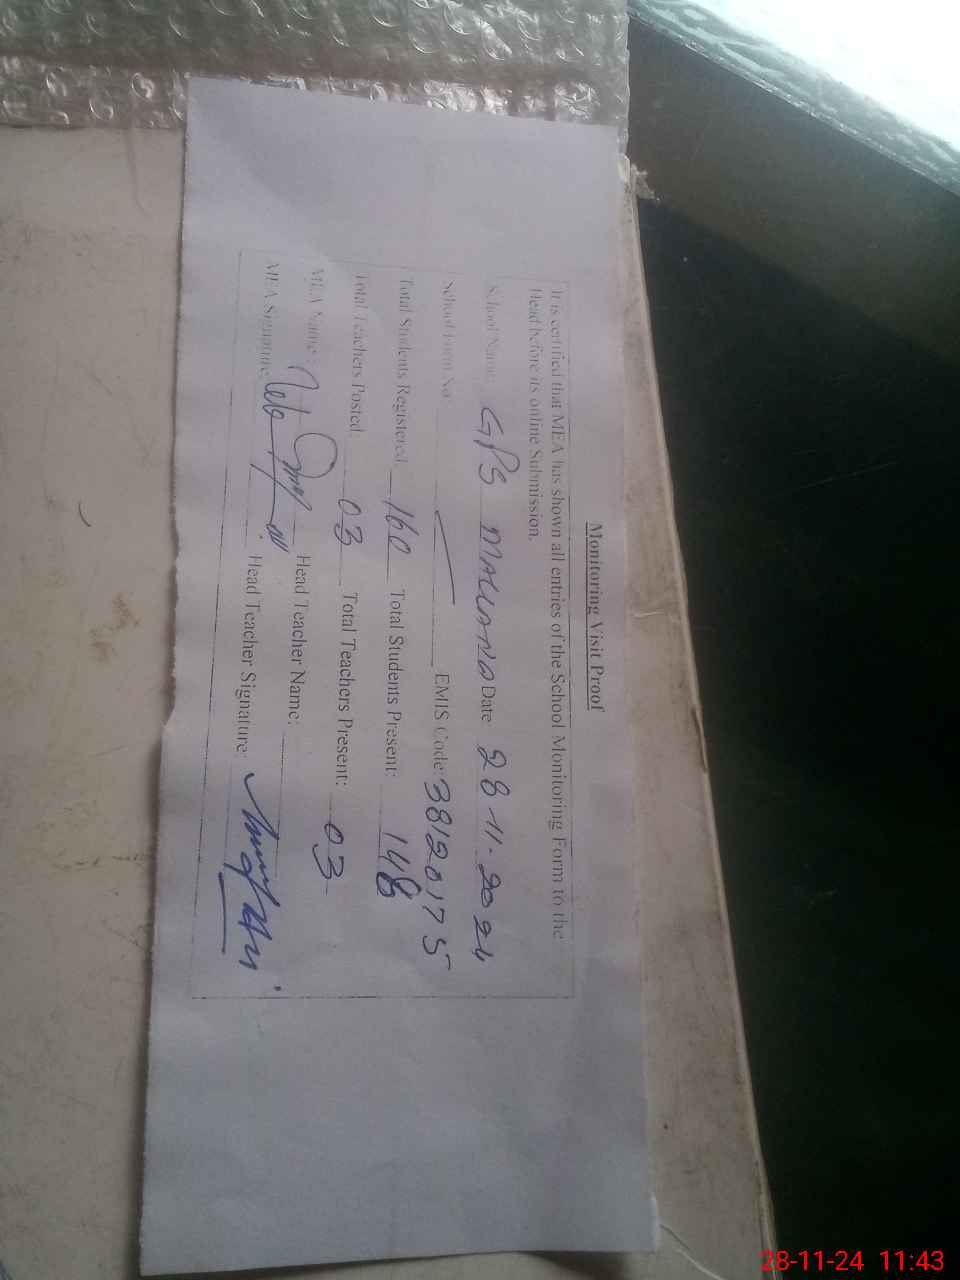 Monitoring Visit Proof
It is certified that MEA has shown all entries of the School Monitoring Form to the
Head before its online Submission.
School Name: GPS Date 28-11-2024
School Form No. EMIS Code: 38120175
Total Students Registered 160 Total Students Present: 148
Total Teachers Posted: 03 Total Teachers Present: 03
MEA Name: Head Teacher Name:
MEA Signature: Head Teacher Signature:
28-11-24 11:43